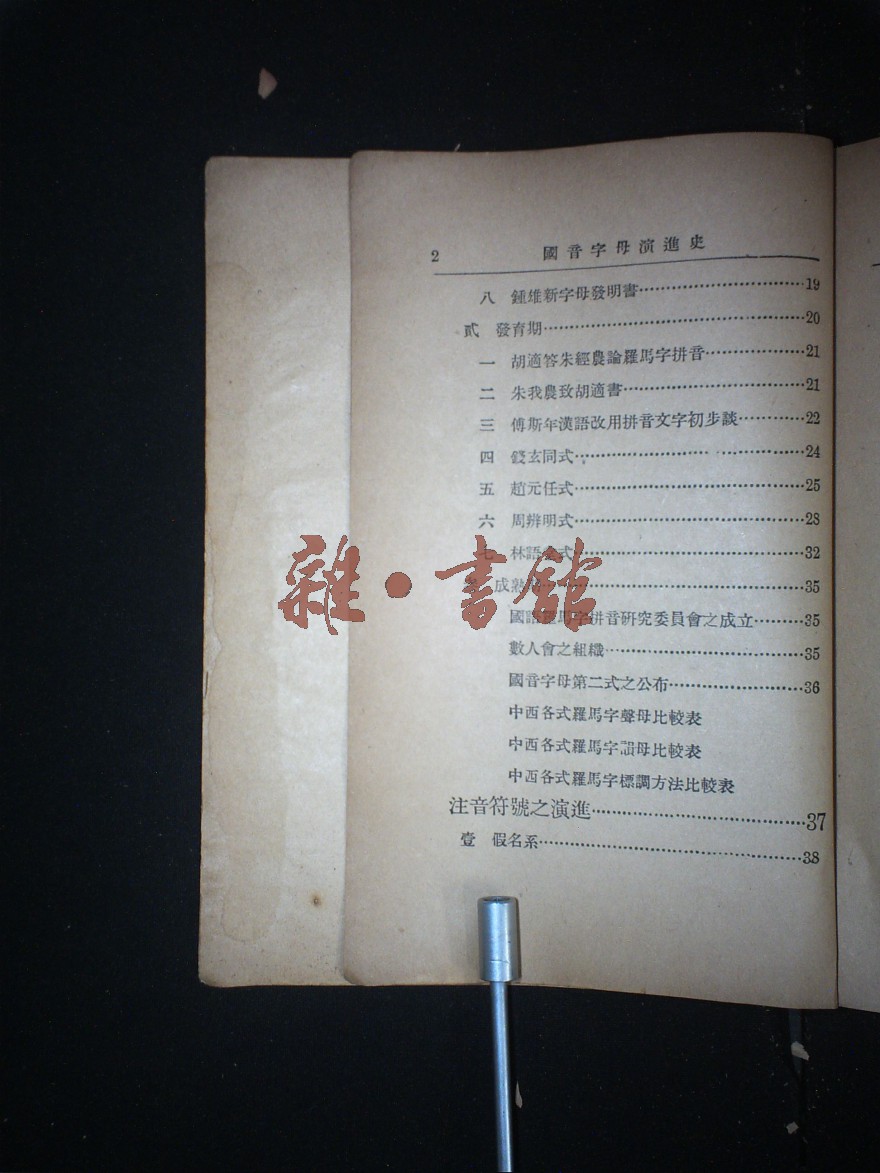 2 國音字母演進史
八 鍾雄新字母發明書 19
貳 發育期 20
一 胡適答朱經農論羅馬字拼音 21
二 朱我農致胡適書 21
三 傅斯年漢語改用拼音文字初步談 22
四 錢玄同式 24
五 趙元任式 25
六 周辨明式 28
七 林語堂式 32
成熟期 35
國語羅馬字拼音研究委員會之成立 35
數人會之組織 35
國音字母第二式之公布 36
中西各式羅馬字聲母比較表
中西各式羅馬字韻母比較表
中西各式羅馬字標調方法比較表
注音符號之演進 37
壹 假名系 38
雜·書館